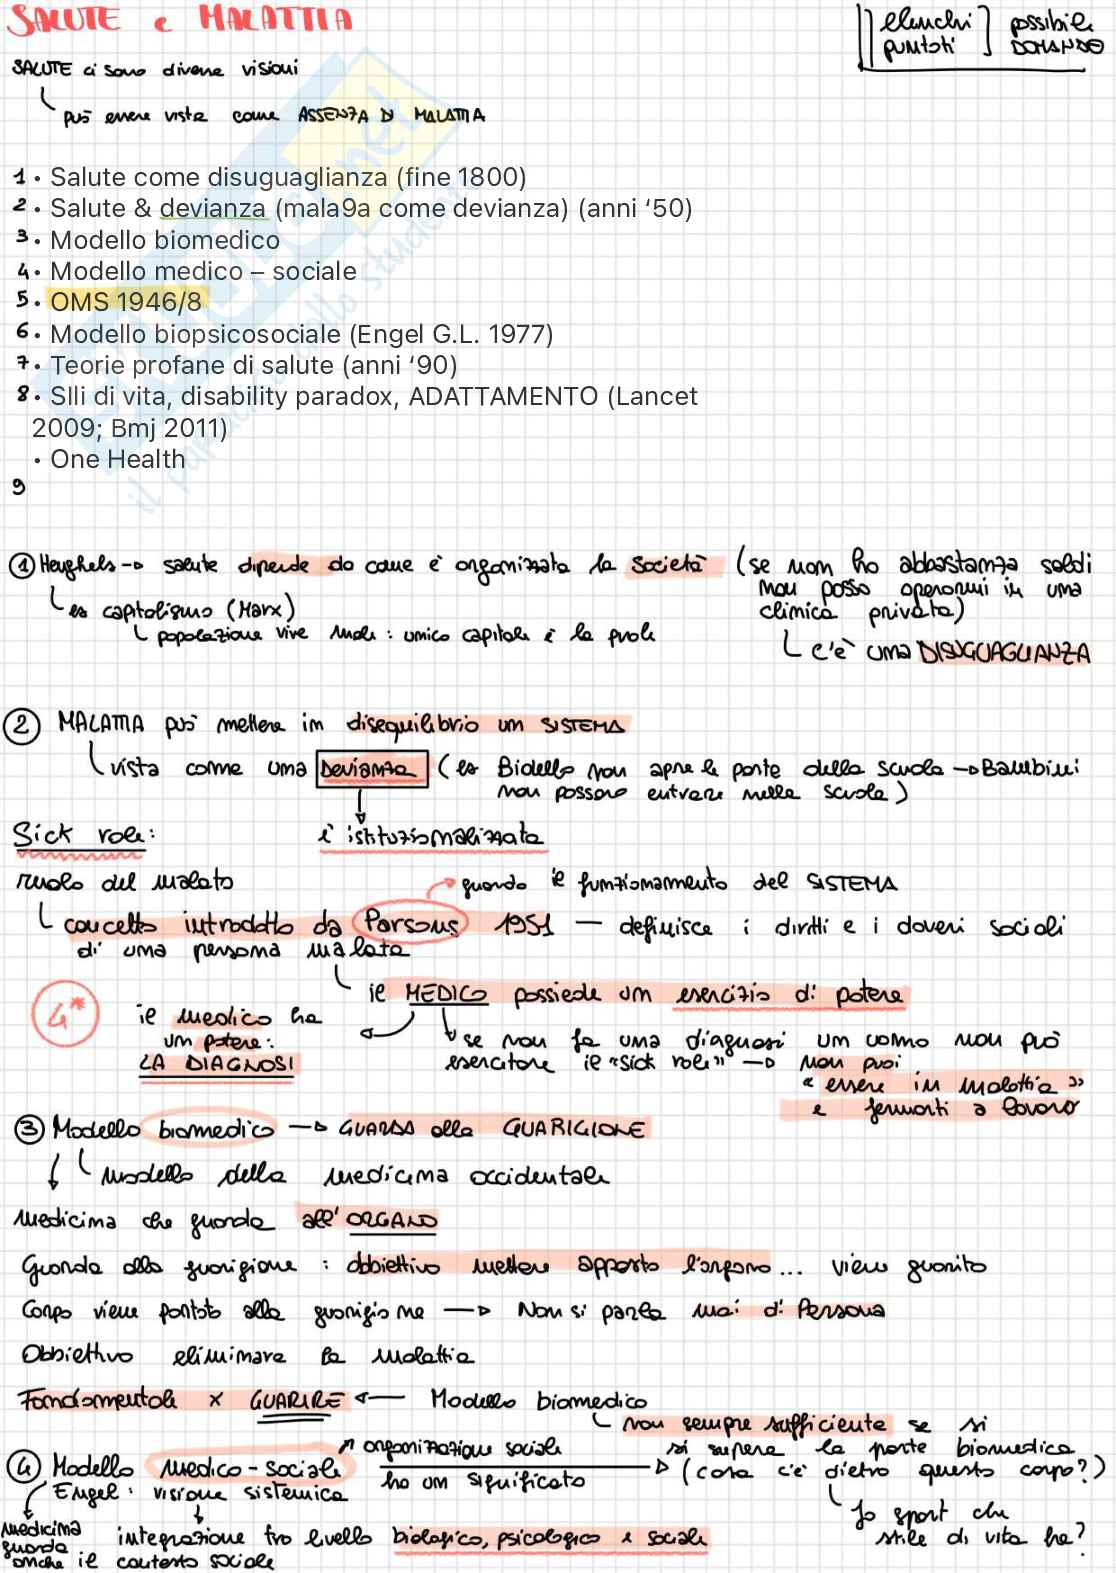 SALUTE e MALATTIA
elenchi puntati ] possibile DOMANDE
SALUTE ci sono diverse visioni
può essere vista come ASSENZA DI MALATTIA
1 • Salute come disuguaglianza (fine 1800)
2 • Salute & devianza (mala9a come devianza) (anni ‘50)
3 • Modello biomedico
4 • Modello medico – sociale
5 • OMS 1946/8
6 • Modello biopsicosociale (Engel G.L. 1977)
7 • Teorie profane di salute (anni ‘90)
8 • SIli di vita, disability paradox, ADATTAMENTO (Lancet
2009; Bmj 2011)
• One Health
9
① Henghels → salute dipende da come è organizzata la Società (se non ho abbastanza soldi
non posso operarmi in una
clinica privata)
es capitalismo (Marx)
popolazione vive male: unico capitale è la prole
c'è una DISUGUAGLIANZA
② MALATTIA può mettere in disequilibrio un SISTEMA
vista come una Devianza (es Bidello non apre le porte della scuola → Bambini
non possono entrare nella scuola)
è istituzionalizzata
Sick role:
ruolo del malato
guarda il funzionamento del SISTEMA
concetto introdotto da Parsons 1951 — definisce i diritti e i doveri sociali
di una persona malata
il MEDICO possiede un esercizio di potere
4*
il medico ha
un potere:
LA DIAGNOSI
se non fa una diagnosi un uomo non può
esercitare il "sick role" → non puoi
"essere in malattia"
e fermarti a lavoro
③ Modello biomedico → GUARDA alla GUARIGIONE
modello della medicina occidentale
Medicina che guarda all'ORGANO
Guarda alla guarigione: obbiettivo mettere apposto l'organo... viene guarito
Corpo viene portato alla guarigione → Non si parla mai di Persona
Obbiettivo eliminare la malattia
Fondamentale x GUARIRE ← Modello biomedico
non sempre sufficiente se si
si supera la parte biomedica
(cosa c'è dietro questo corpo?)
fa sport che
stile di vita ha?
④ Modello medico-sociale
organizzazione sociale
ha un significato
Engel: visione sistemica
medicina
guarda
anche il contesto sociale
integrazione tra livello biologico, psicologico e sociale